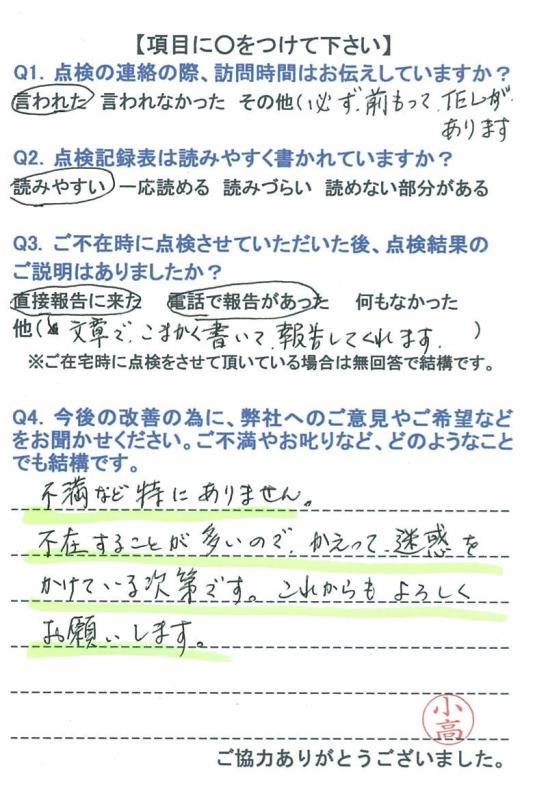 【項目に〇をつけて下さい】
Q1. 点検の連絡の際、訪問時間はお伝えしていますか?
言われた 言われなかった その他(必ず、前もって、TELが
あります
Q2. 点検記録表は読みやすく書かれていますか?
読みやすい 一応読める 読みづらい 読めない部分がある
Q3. ご不在時に点検させていただいた後、点検結果の
ご説明はありましたか?
直接報告に来た 電話で報告があった 何もなかった
他( 文章で、こまかく書いて、報告してくれます. )
※ご在宅時に点検をさせて頂いている場合は無回答で結構です。
Q4. 今後の改善の為に、弊社へのご意見やご希望など
をお聞かせください。ご不満やお叱りなど、どのようなこと
でも結構です。
不満など特にありません。
不在することが多いので、かえって、迷惑を
かけている次第です。これからもよろしく
お願いします。
小高
ご協力ありがとうございました。